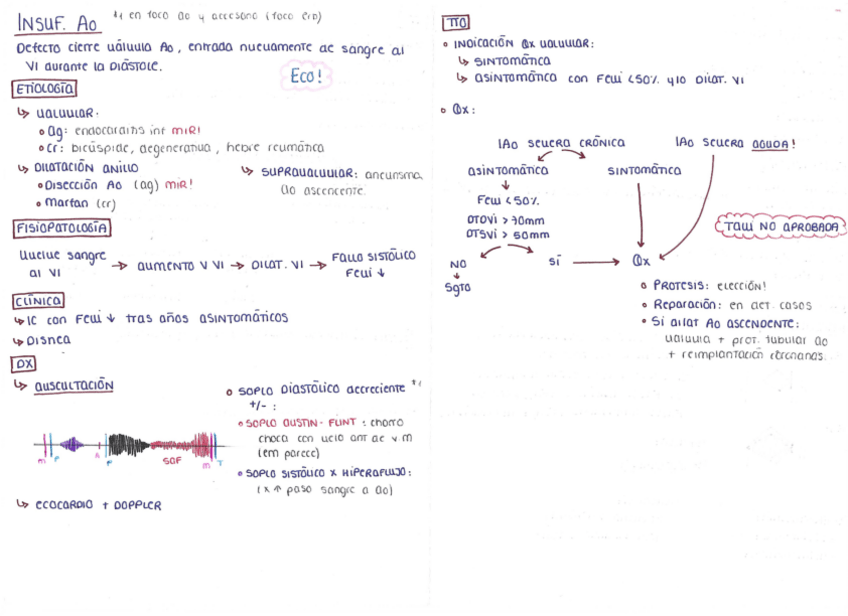 INSUF. Ao *1 en foco Ao y accesorio (foco Erb)
Defecto cierre válvula Ao, entrada nuevamente de sangre al
VI durante la DIÁSTOLE.
Eco!
ETIOLOGÍA
↳ VALVULAR:
• Ag: endocarditis inf MIR!
• Cr: bicúspide, degenerativa, fiebre reumática
↳ DILATACIÓN ANILLO
• DISECCIÓN Ao (ag) MIR!
• Marfan (cr)
↳ SUPRAVALVULAR: aneurisma
Ao ascendente.
FISIOPATOLOGÍA
Vuelve sangre
al VI
→ AUMENTO V VI → DILAT. VI → FALLO SISTÓLICO
FEVI ↓
CLÍNICA
↳ IC con FEVI ↓ tras años ASINTOMÁTICOS
↳ DISNEA
DX
↳ AUSCULTACIÓN
M P A P SOF M T
• SOPLO DIASTÓLICO decreciente *1
+/- :
• SOPLO AUSTIN-FLINT: chorro
choca con velo ant de v M
(EM parece)
• SOPLO SISTÓLICO X HIPERAFLUJO:
(x ↑ paso sangre a Ao)
↳ ECOCARDIO + DOPPLER
TTO
• INDICACIÓN Qx VALVULAR:
↳ SINTOMÁTICA
↳ ASINTOMÁTICA con FEVI <50% y/o DILAT. VI
• Qx:
IAo SEVERA CRÓNICA
IAo SEVERA AGUDA!
ASINTOMÁTICA
SINTOMÁTICA
FEVI <50%
DTDVI > 70mm
DTSVI > 50mm
TAVI NO APROBADA
NO
SÍ → Qx
Sgto
• PROTESIS: ELECCIÓN!
• REPARACIÓN: en det. casos
• SI dilat Ao ASCENDENTE:
válvula + prot. tubular Ao
+ reimplantación coronarias.